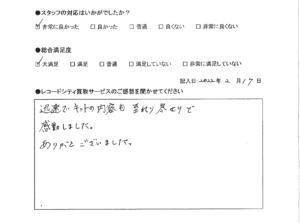 ●スタッフの対応はいかがでしたか？
☑非常に良かった □良かった □普通 □良くない □非常に良くない
●総合満足度
☑大満足 □満足 □普通 □満足していない □非常に満足していない
記入日:2022年 2月17日
●レコードシティ買取サービスのご感想を聞かせてください
迅速で、キットの内容も 至れり尽せりで
感動しました。
ありがとうございました。